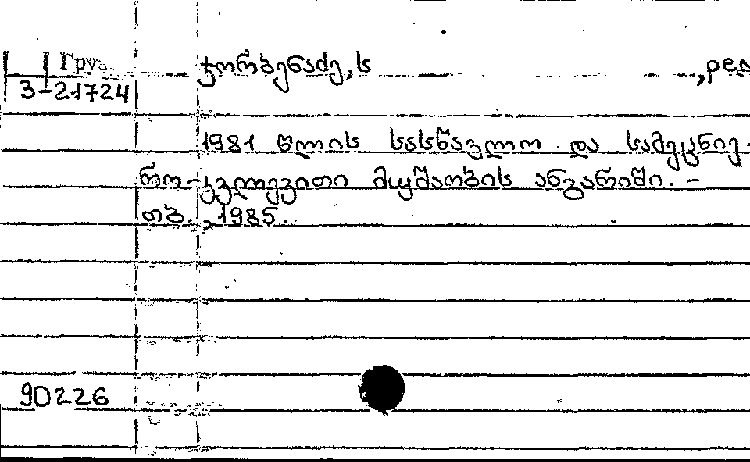 Груз ჯორბენაძე, ს , ред
3-21724
1981 წლის სასწავლო და სამეცნიე-
რო-კვლევითი მუშაობის ანგარიში. -
თბ., 1985.
90226